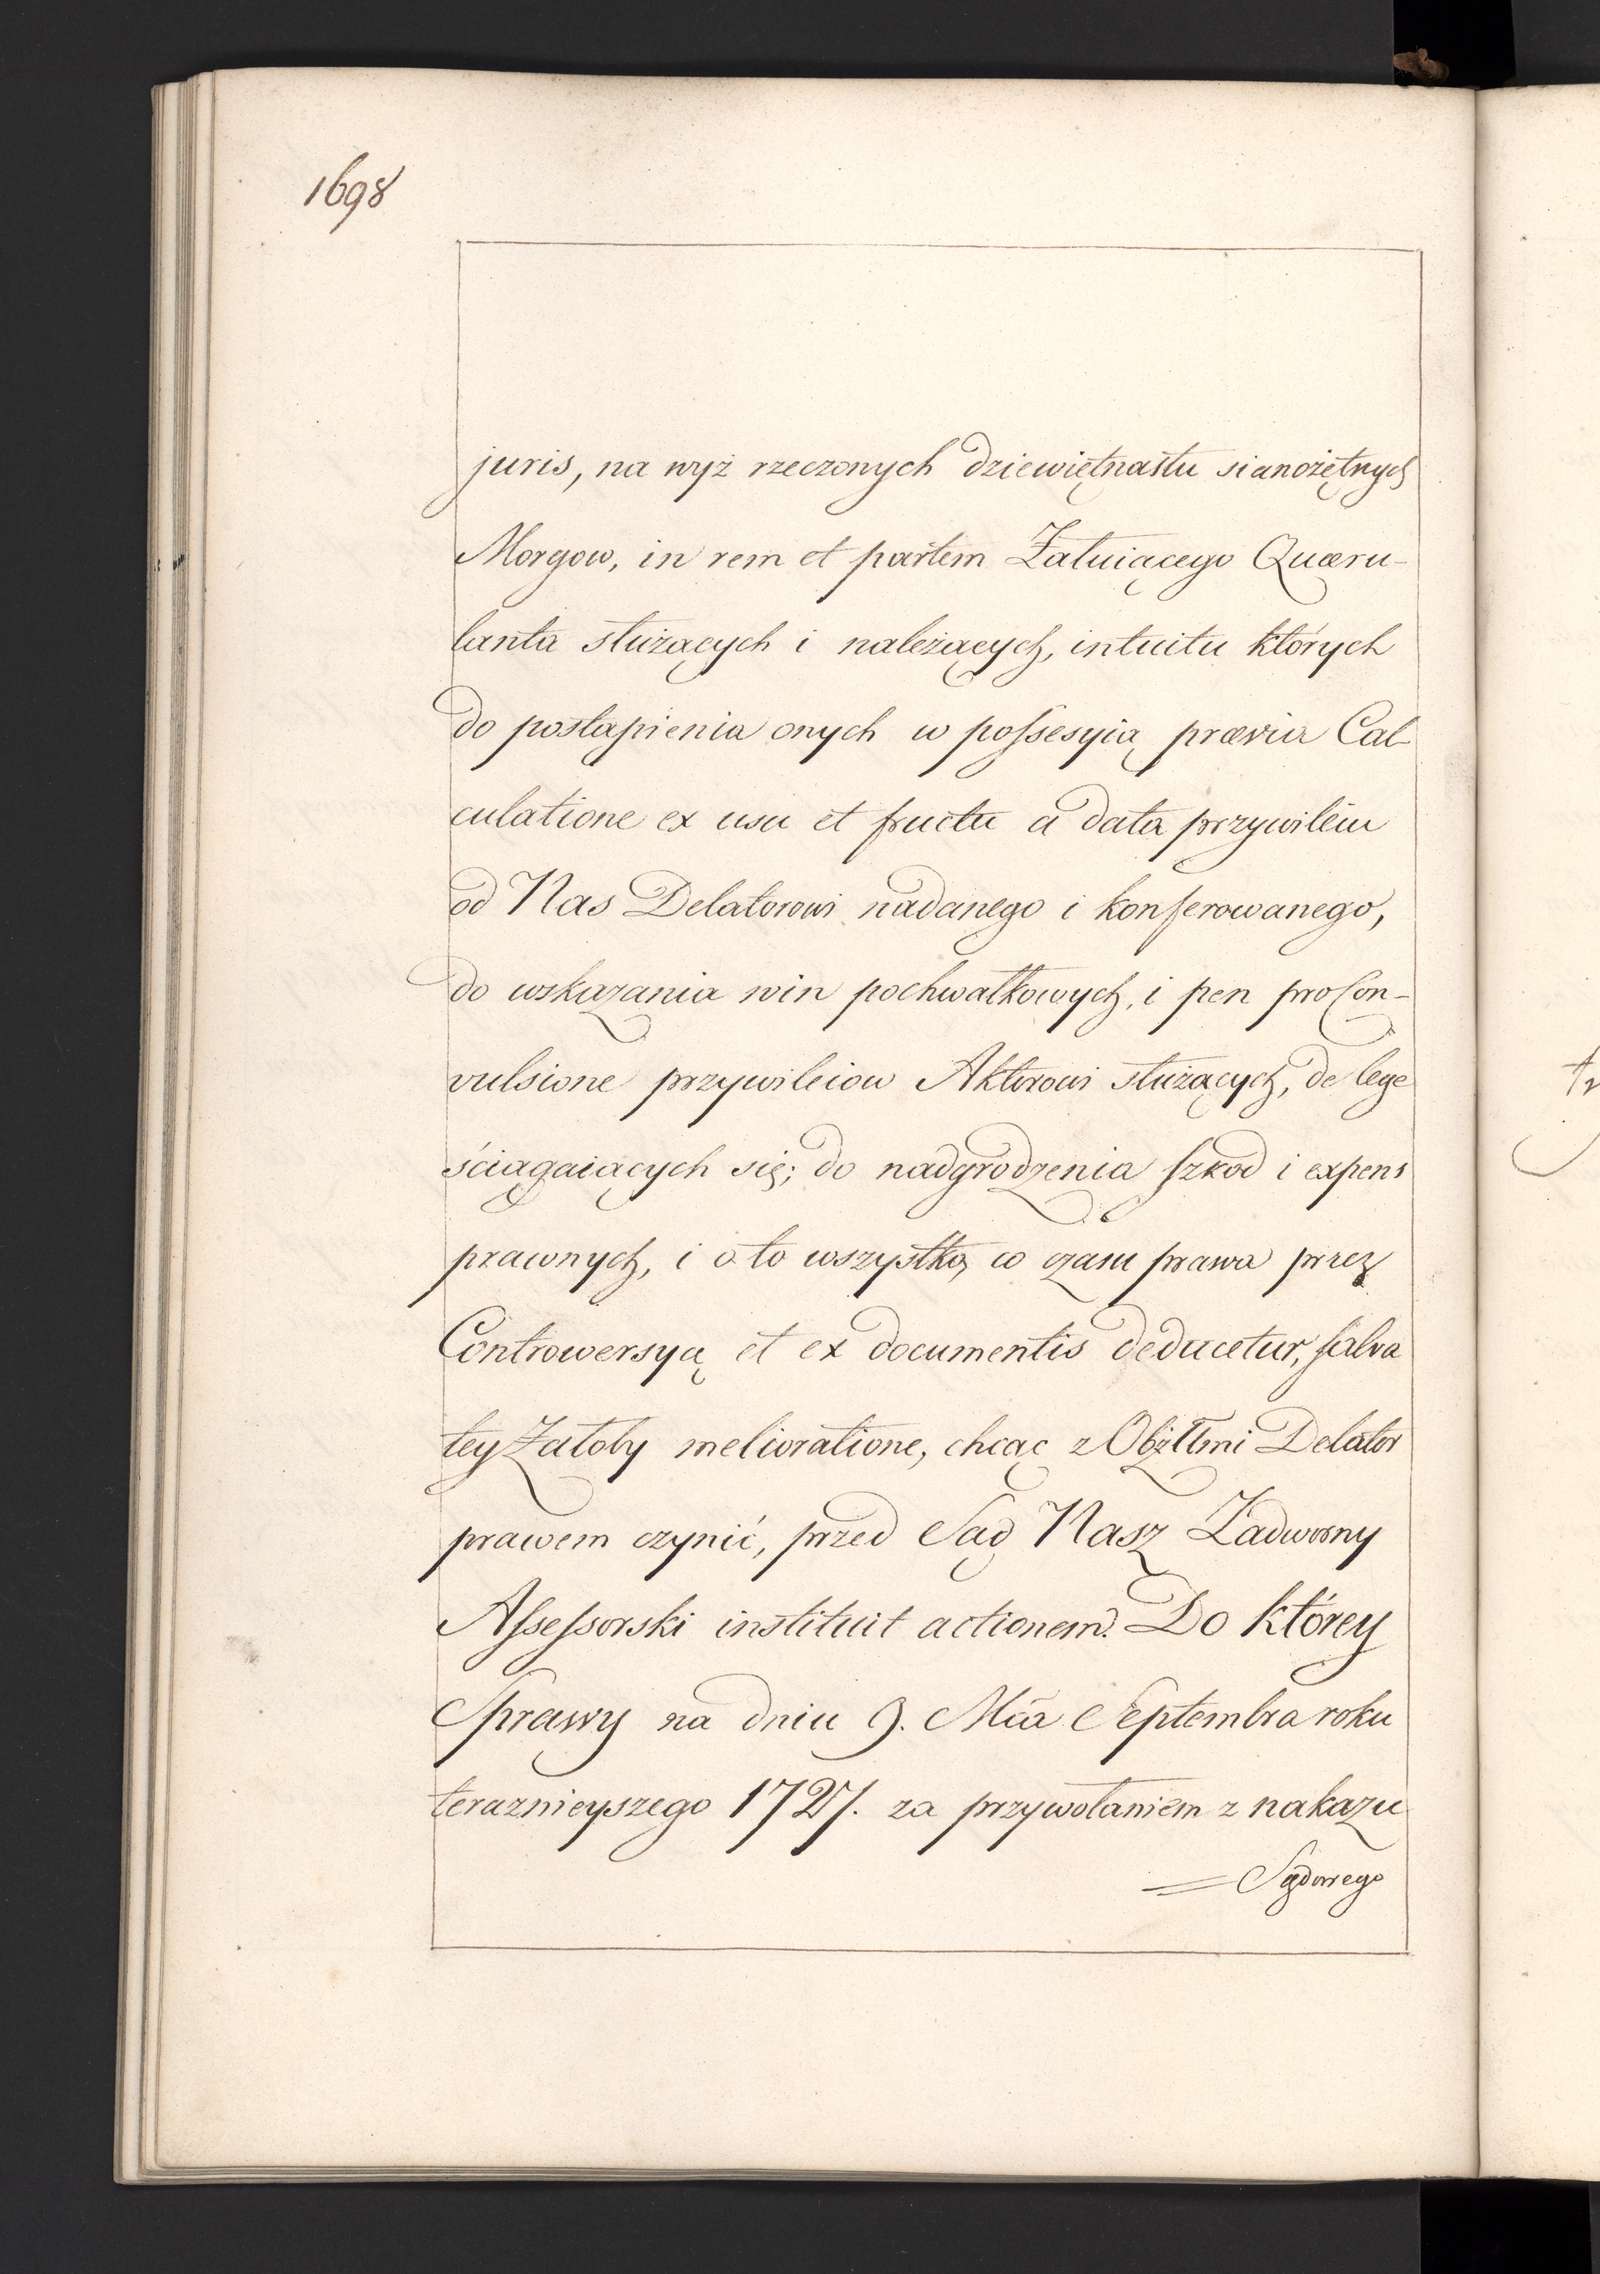 1698
juris, na wyż rzeczonych dziewiętnastu sianożętnych
Morgow, in rem et partem Żałuiącego Quæru-
lanta służących i należących, intuitu których
do postąpienia onych w possesyią prævia Cal-
culatione ex usu et fructu a data przywileiu
od Nas Delatorowi nadanego i konferowanego,
do wskazania win pochwałkowych, i pen pro Con-
vulsione przywileiow Aktorowi służących, de lege
ściągaiących się; do nadgrodzenia szkod i expens
prawnych, i o to wszystko, co czasu prawa przez
Controwersyą et ex documentis deducetur, salva
tey Żałoby melioratione, chcąc z Obżłłmi Delator
prawem czynić, przed Sąd Nasz Zadworny
Assessorski instituit actionem. Do którey
Sprawy na dniu 9. Mca Septembra roku
teraznieyszego 1727. za przywołaniem z nakazu
Sądowego